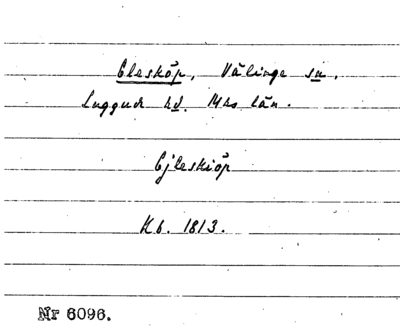 Cleskôp, Välinge sn.
Luggude hd. Mhs län.
Cjleskiôp
Kb. 1813.
Nr 6096.